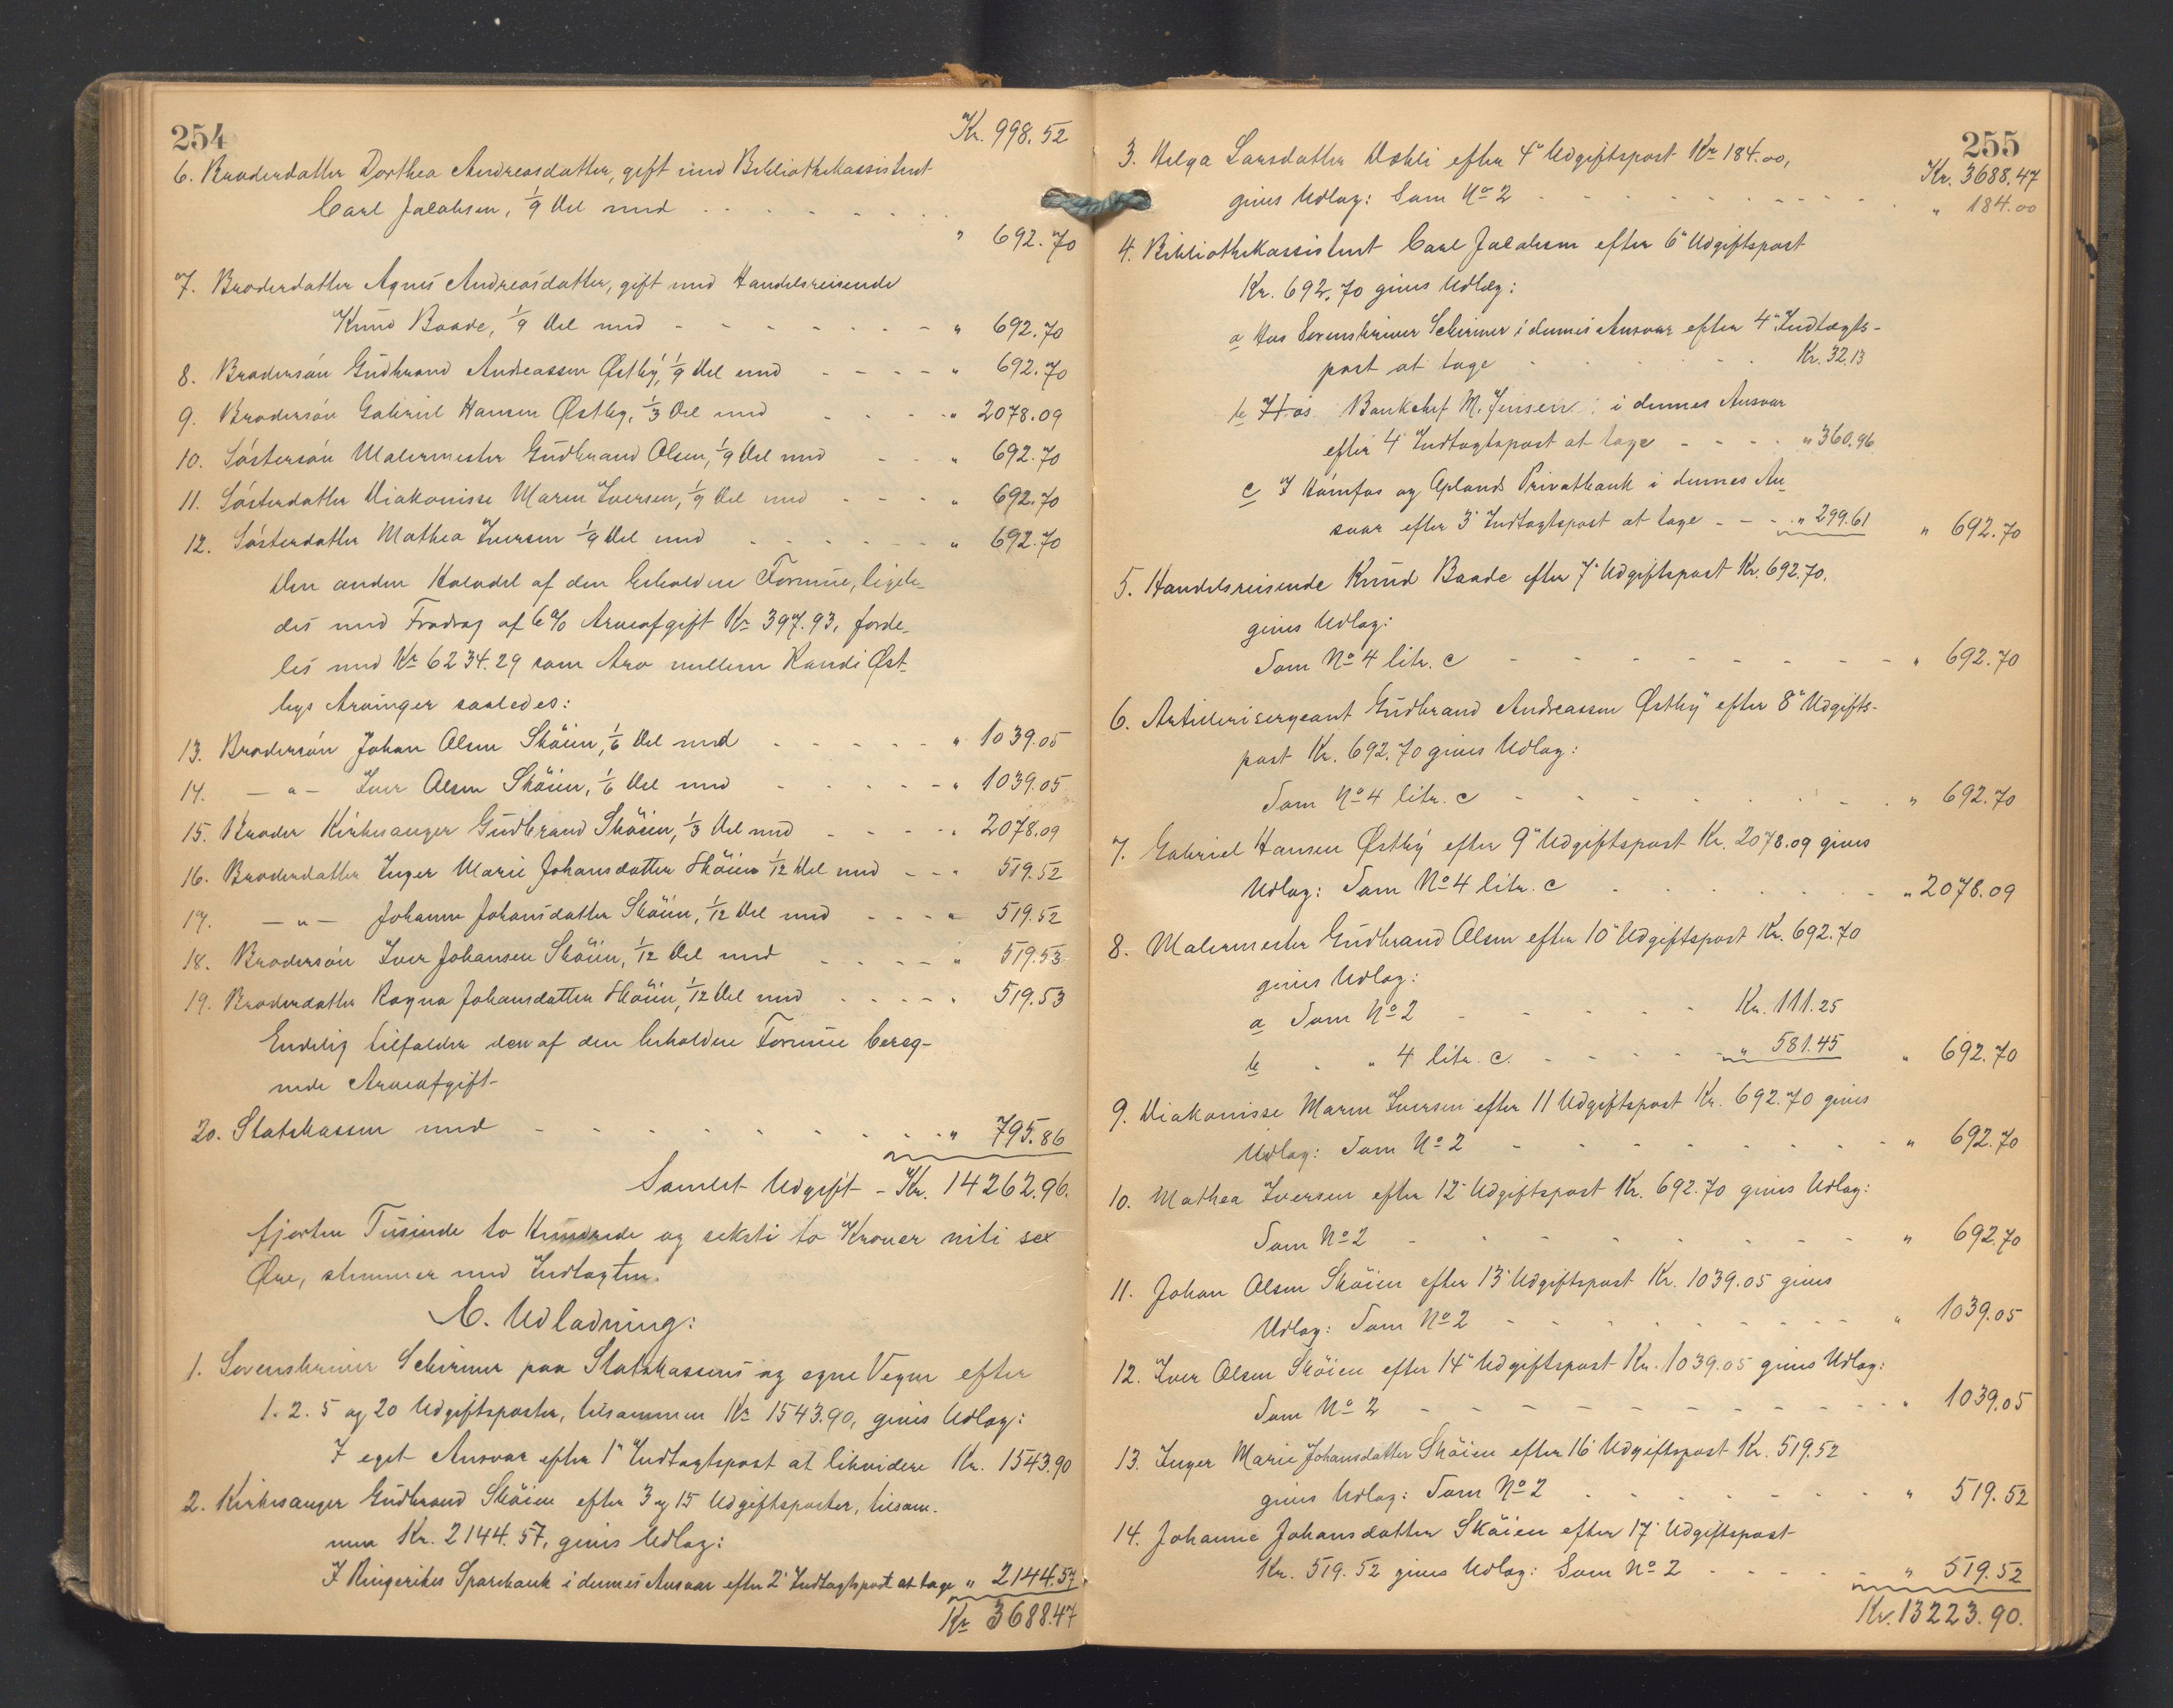 254
Kr. 998.52
6. Broderdatter Dorthea Andreasdatter, gift med Bibliothekassistent
Carl Jacobsen, 1/9 Del med - - - " 692.70
7. Broderdatter Agnes Andreasdatter, gift med Handelsreisende
Knud Baade, 1/9 Del med - - - " 692.70
8. Brodersön Gudbrand Andreassen Østby, 1/9 Del med - - - " 692.70
9. Brodersön Gabriel Hansen Østby, 1/3 Del med - - - " 2078.09
10. Söstersön Malermester Gudbrand Olsen, 1/9 Del med - - - " 692.70
11. Sösterdatter Diakonisse Maren Iversen, 1/9 Del med - - - " 692.70
12. Sösterdatter Mathea Iversen 1/9 Del med - - - " 692.70
Den anden Halvdel af den beholdne Formue, ligele-
des med Fradrag af 6% Arveafgift Kr 397.93, forde-
les med Kr 6234.29 som Arv mellem Randi Øst-
bys Arvinger saaledes:
13. Brodersön Johan Olsen Sköien, 1/6 Del med - - - " 1039.05
14. - " - Iver Olsen Sköien, 1/6 Del med - - - " 1039.05
15. Broder Kirkesanger Gudbrand Sköien, 1/3 Del med - - - " 2078.09
16. Broderdatter Inger Marie Johansdatter Sköien 1/12 Del med - - " 519.52
17. - " - Johanne Johansdatter Sköien, 1/12 Del med - - - " 519.52
18. Brodersön Iver Johansen Sköien, 1/12 Del med - - - " 519.53
19. Broderdatter Ragna Johansdatter Sköien, 1/12 Del med - - - " 519.53
Endelig tilfalder den af den beholdne Formue bereg-
nede Arveafgift
20. Statskassen med - - - " 795.86
Samlet Udgift - Kr. 14262.96.
fjorten Tusinde to Hundrede og seksti to Kroner niti sex
Øre, stemmer med Indtægten.
C. Udlodning:
1. Sorenskriver Schirmer paa Statskassens og egne Vegne efter
1. 2. 5 og 20 Udgiftsposter, tilsammen Kr 1543.90, gives Udlæg:
I eget Ansvar efter 1" Indtægtspost at likvidere Kr. 1543.90
2. Kirkesanger Gudbrand Sköien efter 3 og 15 Udgiftsposter, tilsam-
men Kr. 2144.57, gives Udlæg:
I Ringerikes Sparebank i dennes Ansvar efter 2" Indtægtspost at tage " 2144.57
Kr 3688.47
255
Kr. 3688.47
3. Helga Larsdatter Dæhli efter 4" Udgiftspost Kr 184.00,
gives Udlæg: Som No 2 - - - " 184.00
4. Bibliothekassistent Carl Jacobsen efter 6" Udgiftspost
Kr. 692.70 gives Udlæg:
a Hos Sorenskriver Schirmer i dennes Ansvar efter 4" Indtægts-
post at tage - - - Kr. 32.13
b Hos Bankchef M. Jensen i dennes Ansvar
efter 4" Indtægtspost at tage - - - " 360.96
c I Hönefos og Oplands Privatbank i dennes An-
svar efter 3" Indtægtspost at tage - - - " 299.61 " 692.70
5. Handelsreisende Knud Baade efter 7" Udgiftspost Kr. 692.70,
gives Udlæg:
Som No 4 litr. c - - - " 692.70
6. Artillerisergeant Gudbrand Andreassen Østby efter 8" Udgifts-
post Kr. 692.70 gives Udlæg:
Som No 4 litr. c - - - " 692.70
7. Gabriel Hansen Østby efter 9" Udgiftspost Kr. 2078.09 gives
Udlæg: Som No 4 litr. c - - - " 2078.09
8. Malermester Gudbrand Olsen efter 10" Udgiftspost Kr. 692.70
gives Udlæg:
a Som No 2 - - - Kr. 111.25
b " " 4 litr. c. - - - " 581.45 " 692.70
9. Diakonisse Maren Iversen efter 11 Udgiftspost Kr. 692.70 gives
Udlæg: Som No 2 - - - " 692.70
10. Mathea Iversen efter 12" Udgiftspost Kr. 692.70 gives Udlæg:
Som No 2 - - - " 692.70
11. Johan Olsen Sköien efter 13" Udgiftspost Kr. 1039.05 gives
Udlæg: Som No 2 - - - " 1039.05
12. Iver Olsen Sköien efter 14" Udgiftspost Kr. 1039.05 gives Udlæg:
Som No 2 - - - " 1039.05
13. Inger Marie Johansdatter Sköien efter 16" Udgiftspost Kr. 519.52
gives Udlæg: Som No 2 - - - " 519.52
14. Johanne Johansdatter Sköien efter 17" Udgiftspost
Kr. 519.52 gives Udlæg: Som No 2 - - - " 519.52
Kr. 13223.90.